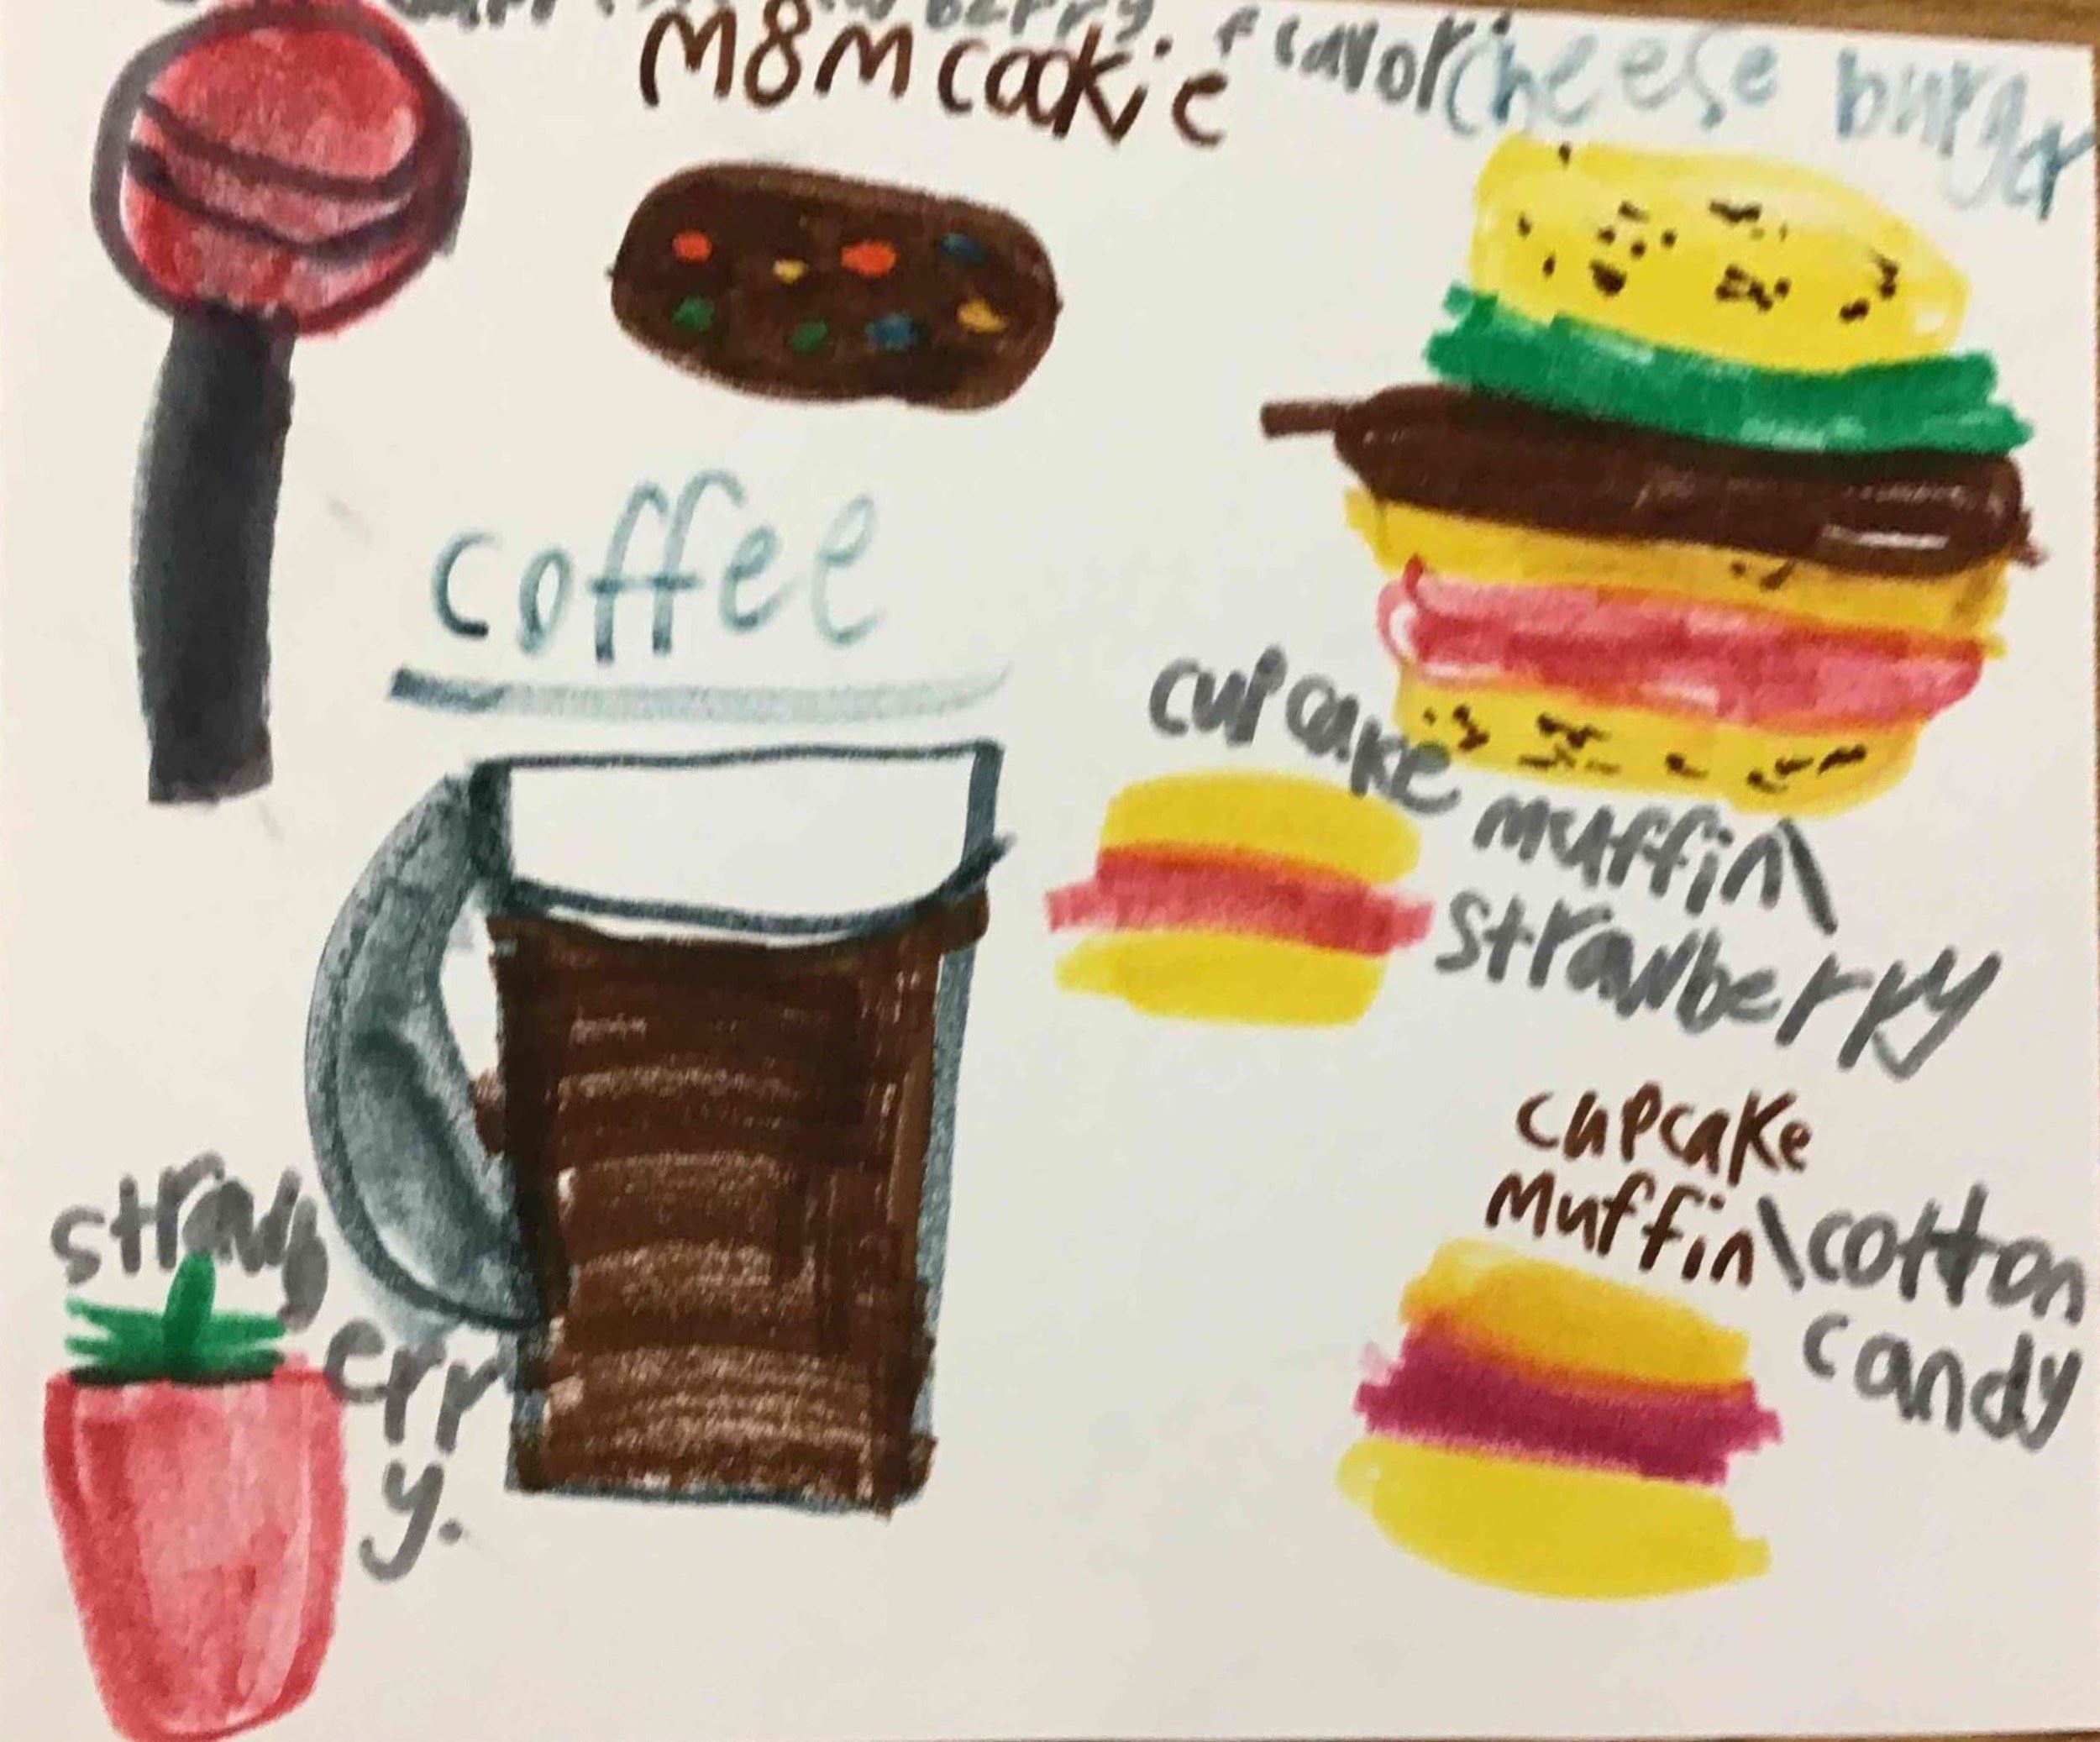 berry. flavor
M&M cookie
cheese burger
coffee
cupcake
muffin\
strawberry
cupcake
muffin\cotton
candy
strawb
err
y.